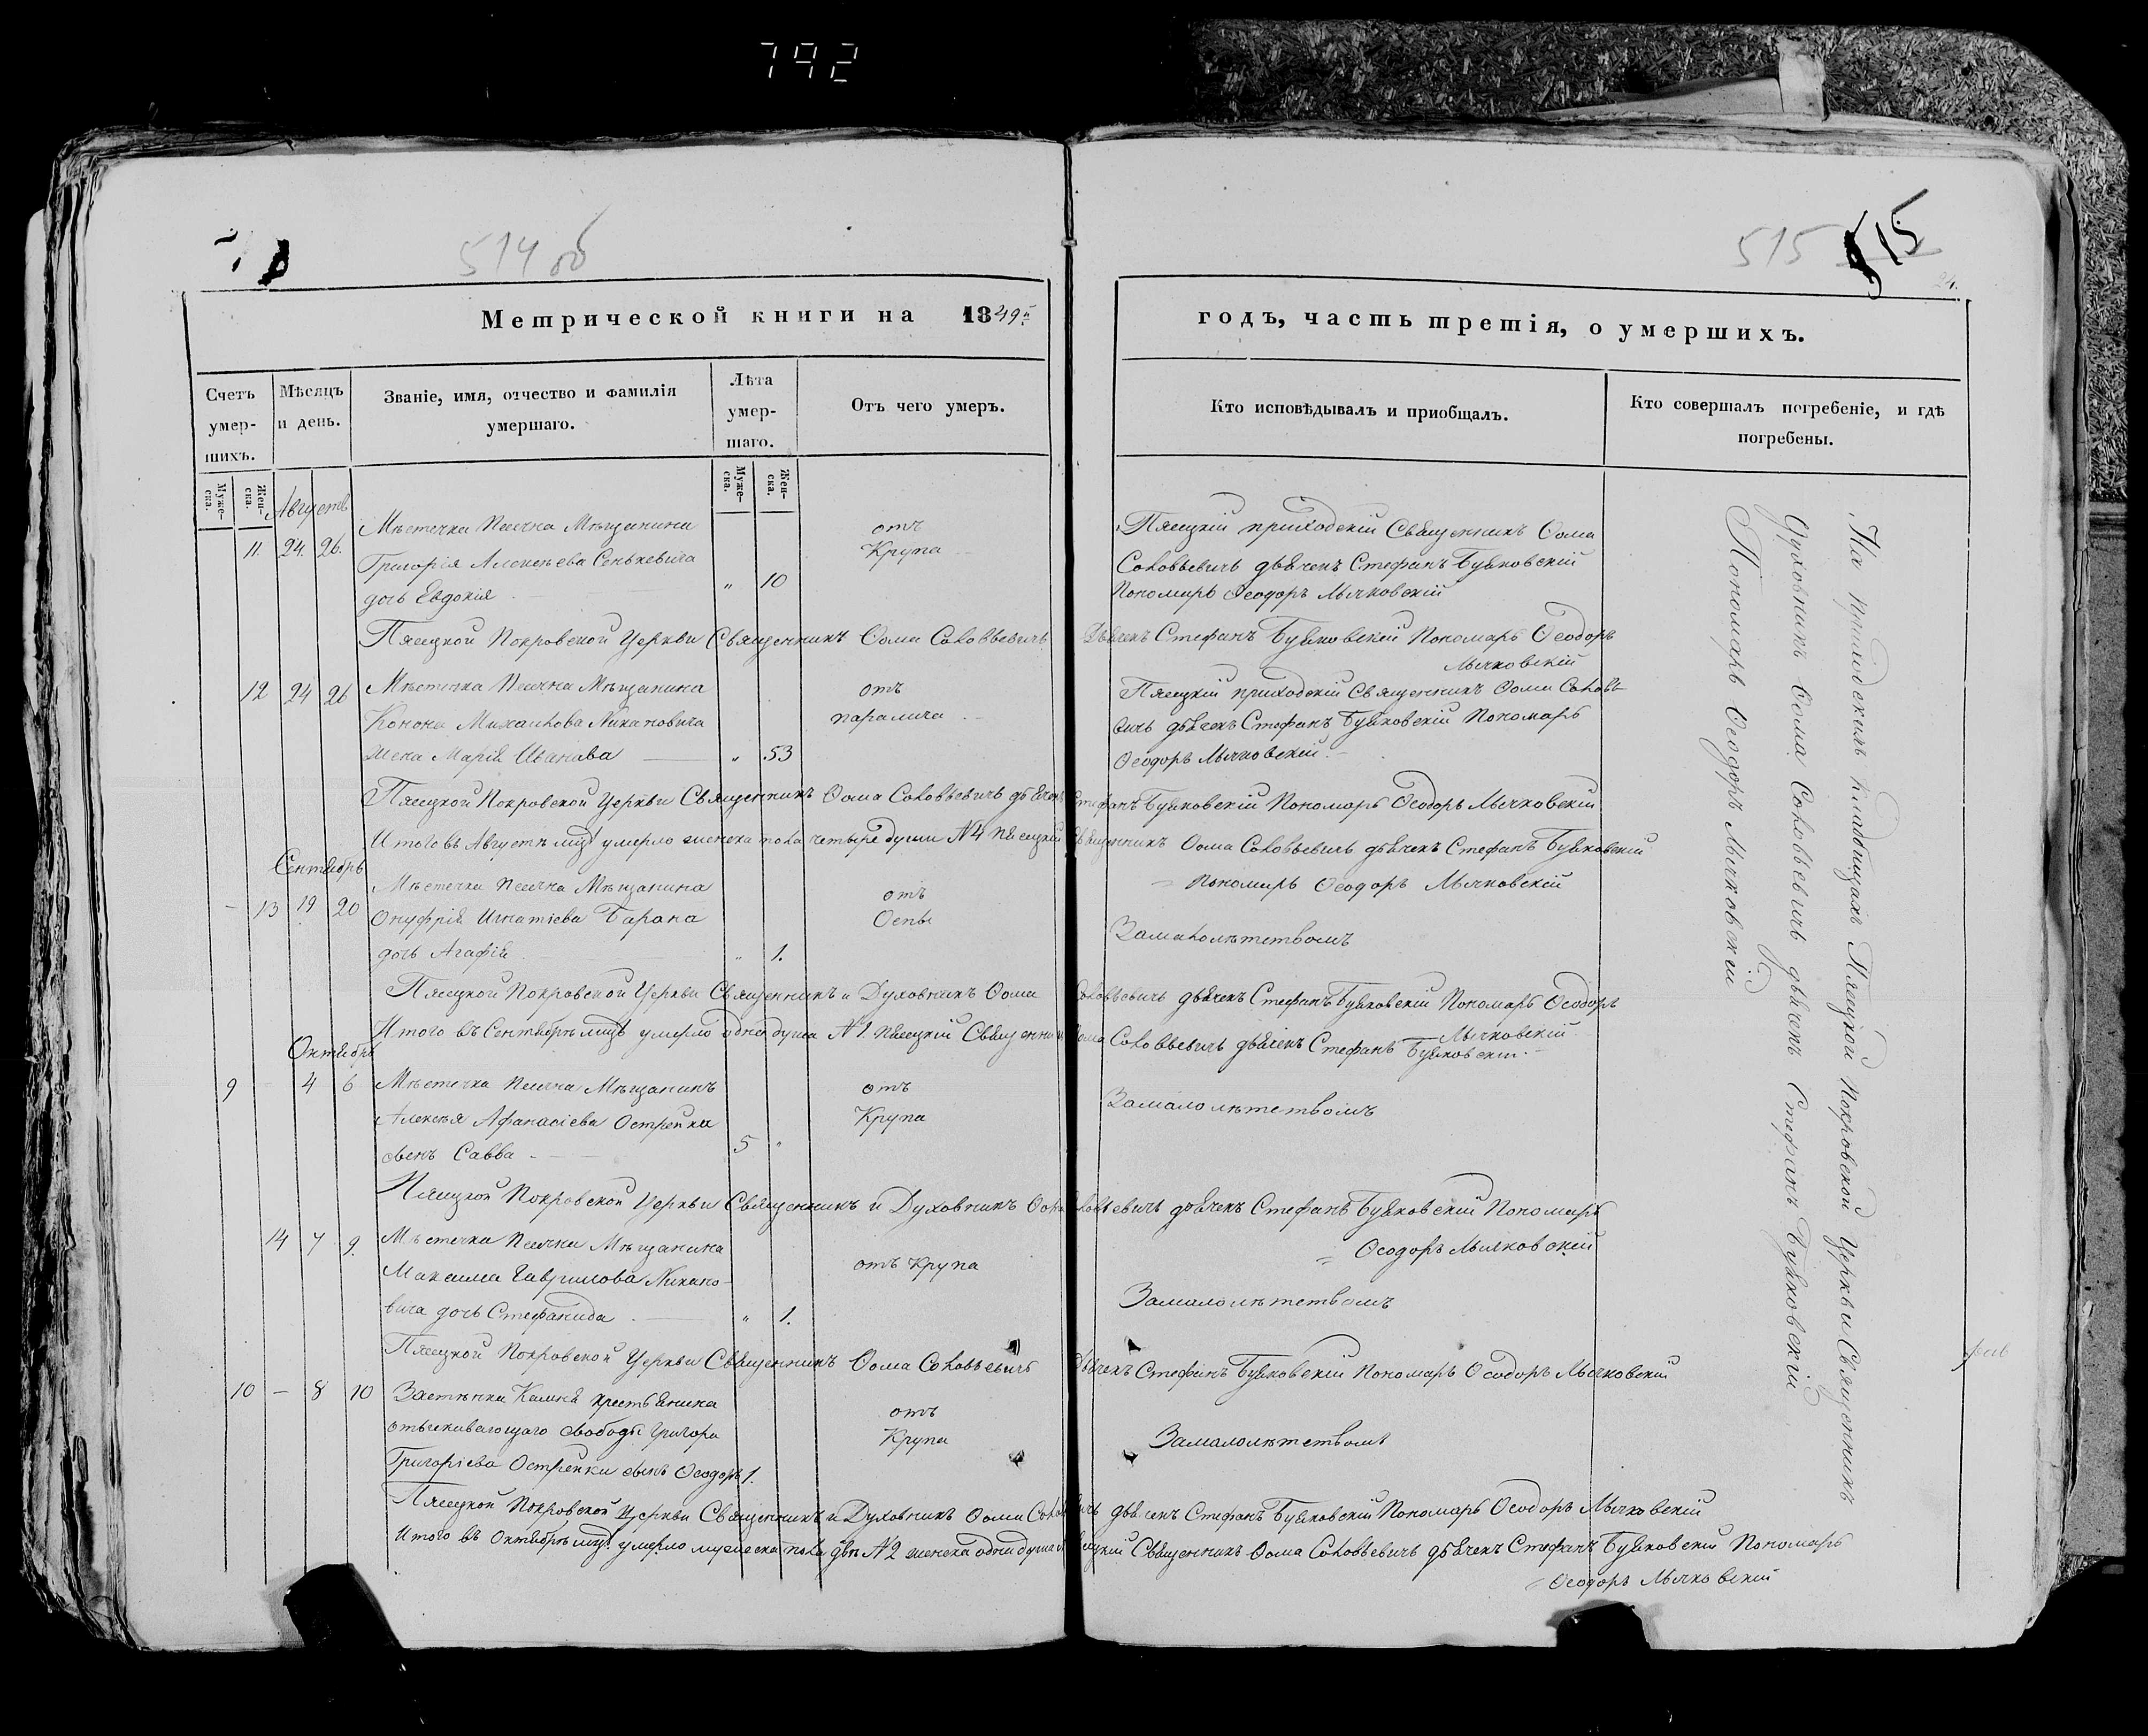 792
514 об
515 515
24.
Метрической книги на 1849й
годъ, часть третія, о умершихъ.
Счетъ умер-шихъ.
Мѣсяцъ и день.
Званіе, имя, отчество и фамилія умершаго.
Лѣта умер-шаго.
Отъ чего умеръ.
Кто исповѣдывалъ и приобщалъ.
Кто совершалъ погребеніе, и гдѣ погребены.
Муже-ска.
Жен-ска.
Муже-ска.
Жен-ска.
Августъ
11. 24. 26.
Мѣстечка Песчка Мѣщанина
Григорія Алексѣева Сенькевича
дочь Евдокія
" 10
отъ
Крупа
Пясецкій приходскій Священникъ Ѳома
Соловьевичъ дьячекъ Стефанъ Буяковскій
Пономарь Ѳеодоръ Лычковскій
Пясецкой Покровской Церкви Священникъ Ѳома Соловьевичъ Дьячекъ Стефанъ Буяковскій Пономарь Ѳеодоръ
Лычковскій
12 24 26
Мѣстечка Песчка Мѣщанина
Конона Михайлова Никановича
жена Марія Иванова
" 53
отъ
паралича
Пясецкій приходскій Священникъ Ѳома Соловь-
вичъ дьячекъ Стефанъ Буяковскій Пономарь
Ѳеодоръ Лычковскій
Пясецкой Покровской Церкви Священникъ Ѳома Соловьевичъ дьячекъ Стефанъ Буяковскій Пономарь Ѳеодоръ Лычковскій
Итого въ Августѣ мцѣ умерло женска пола четыре души №4 Пясецкій Священникъ Ѳома Соловьевичъ дьячекъ Стефанъ Буяковскій
Пономарь Ѳеодоръ Лычковскій
Сентябрь
- 13 19 20
Мѣстечка Песчка Мѣщанина
Онуфрія Игнатіева Барана
дочь Агафія
" 1.
отъ
Оспы
Замалолѣтствомъ
Пясецкой Покровской Церкви Священникъ и Духовникъ Ѳома Соловьевичъ дьячекъ Стефанъ Буяковскій Пономарь Ѳеодоръ
Лычковскій
Итого въ Сентябрѣ мцѣ умерло одна душа №1. Пясецкій Священникъ Ѳома Соловьевичъ дьячекъ Стефанъ Буяковскій
Октябрь
9 - 4 6
Мѣстечка Песчка Мѣщанинъ
Алексѣя Афанасіева Острейки
сынъ Савва
5 "
отъ
Крупа
Замалолѣтствомъ
Пясецкой Покровской Церкви Священникъ и Духовникъ Ѳома Соловьевичъ дьячекъ Стефанъ Буяковскій Пономарь
Ѳеодоръ Лычковскій
14 7 9.
Мѣстечка Песчка Мѣщанина
Максима Гаврилова Никано-
вича дочь Стефанида
" 1.
отъ Крупа
Замалолѣтствомъ
Пясецкой Покровской Церкви Священникъ Ѳома Соловьевичъ дьячекъ Стефанъ Буяковскій Пономарь Ѳеодоръ Лычковскій
10 - 8 10
Застѣнка крестьянина
отыскивающаго свободы Григора
Григоріева Острейки сынъ Ѳеодоръ 1.
отъ
Крупа
Замалолѣтствомъ
Пясецкой Покровской Церкви Священникъ и Духовникъ Ѳома Соловьевичъ дьячекъ Стефанъ Буяковскій Пономарь Ѳеодоръ Лычковскій
Итого въ Октябрѣ мцѣ умерло мужеска пола двѣ №2 женска одна душа Пясецкій Священникъ Ѳома Соловьевичъ дьячекъ Стефанъ Буяковскій Пономарь
Ѳеодоръ Лычковскій
На приходскихъ кладбищахъ Пясецкой Покровской Церкви Священникъ
Духовникъ Ѳома Соловьевичъ дьячекъ Стефанъ Буяковскій
Пономарь Ѳеодоръ Лычковскій